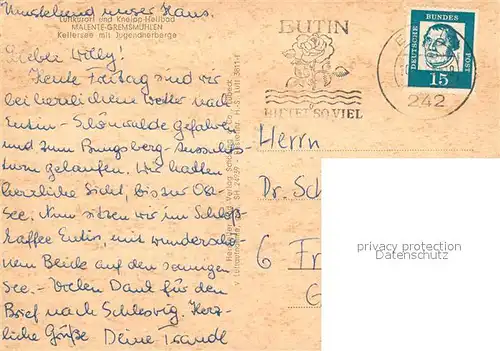 Umstehend unser Haus.
Luftkurort und Kneipp-Heilbad
MALENTE-GREMSMÜHLEN
Kellersee mit Jugendherberge
Lieber Willy!
Heute Freitag sind wir
bei herrlichem Wetter nach
Eutin-Schönwalde gefahren
und zum Bungsberg-Aussichts-
turm gelaufen. Wir hatten
herrliche Sicht, bis zur Ost-
see. Nun sitzen wir im Schloß-
kaffee Eutin, mit wundersche-
nem Blick auf den sonnigen
See. - Vielen Dank für den
Brief nach Schleswig. Herz-
liche Grüße Deine Traudl
EUTIN
BIETET SO VIEL
242
DEUTSCHE BUNDES POST
15
Herrn
Dr. Sch
6 Fr
privacy protection
Datenschutz